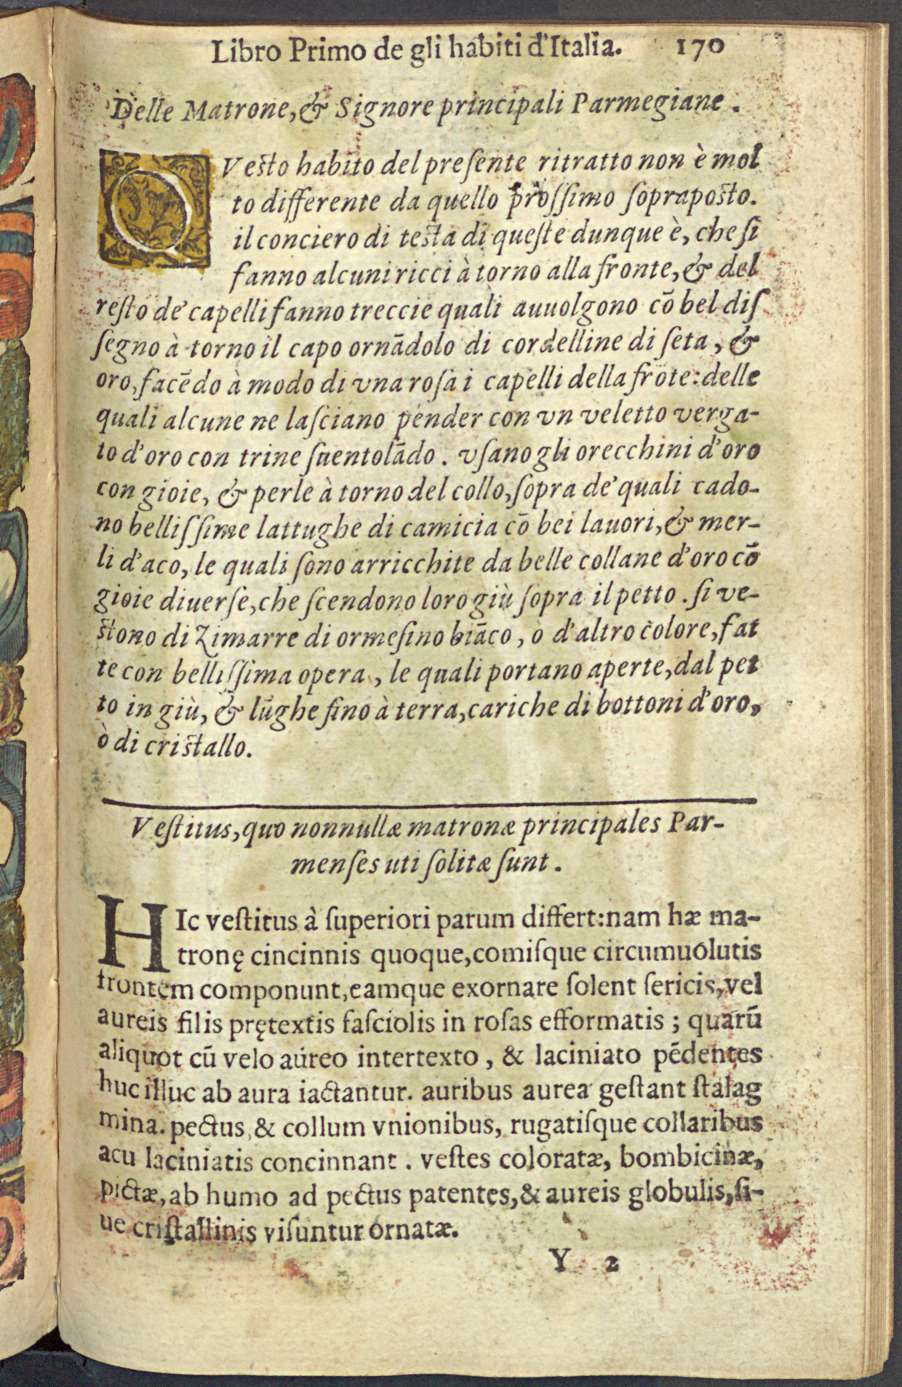 Libro Primo de gli habiti d'Italia. 170
Delle Matrone, & Signore principali Parmegiane.
QVesto habito del preſente ritratto non è mol
to differente da quello proſſimo ſoprapoſto.
il conciero di teſta di queſte dunque è, che ſi
fanno alcuni ricci à torno alla fronte, & del
reſto de' capelli fanno treccie quali auuolgono cō bel diſ
ſegno à torno il capo ornādolo di cordelline di ſeta, &
oro, facēdo à modo di vna roſa i capelli della frōte: delle
quali alcune ne laſciano pender con vn veletto verga-
to d'oro con trine ſuentolādo. vſano gli orecchini d'oro
con gioie, & perle à torno del collo, ſopra de' quali cado-
no belliſſime lattughe di camicia cō bei lauori, & mer-
li d'aco, le quali ſono arricchite da belle collane d'oro cō
gioie diuerſe, che ſcendono loro giù ſopra il petto. ſi ve-
ſtono di Zimarre di ormeſino biāco, o d'altro colore, fat
te con belliſſima opera, le quali portano aperte, dal pet
to in giù, & lūghe fino à terra, cariche di bottoni d'oro,
ò di criſtallo.
Veſtitus, quo nonnullæ matronæ principales Par-
menſes uti ſolitæ ſunt.
HIc veſtitus à ſuperiori parum differt: nam hæ ma-
tronę cincinnis quoque, comiſque circumuolutis
frontem componunt, eamque exornare ſolent ſericis, vel
aureis filis prętextis faſciolis in roſas efformatis; quarū
aliquot cū velo aureo intertexto, & laciniato pēdentes
huc illuc ab aura iactantur. auribus aurea geſtant ſtalag
mina. pectus, & collum vnionibus, rugatiſque collaribus
acu laciniatis concinnant. veſtes coloratæ, bombicinæ,
pictæ, ab humo ad pectus patentes, & aureis globulis, ſi-
ue criſtallinis viſuntur ornatæ.
Y 2